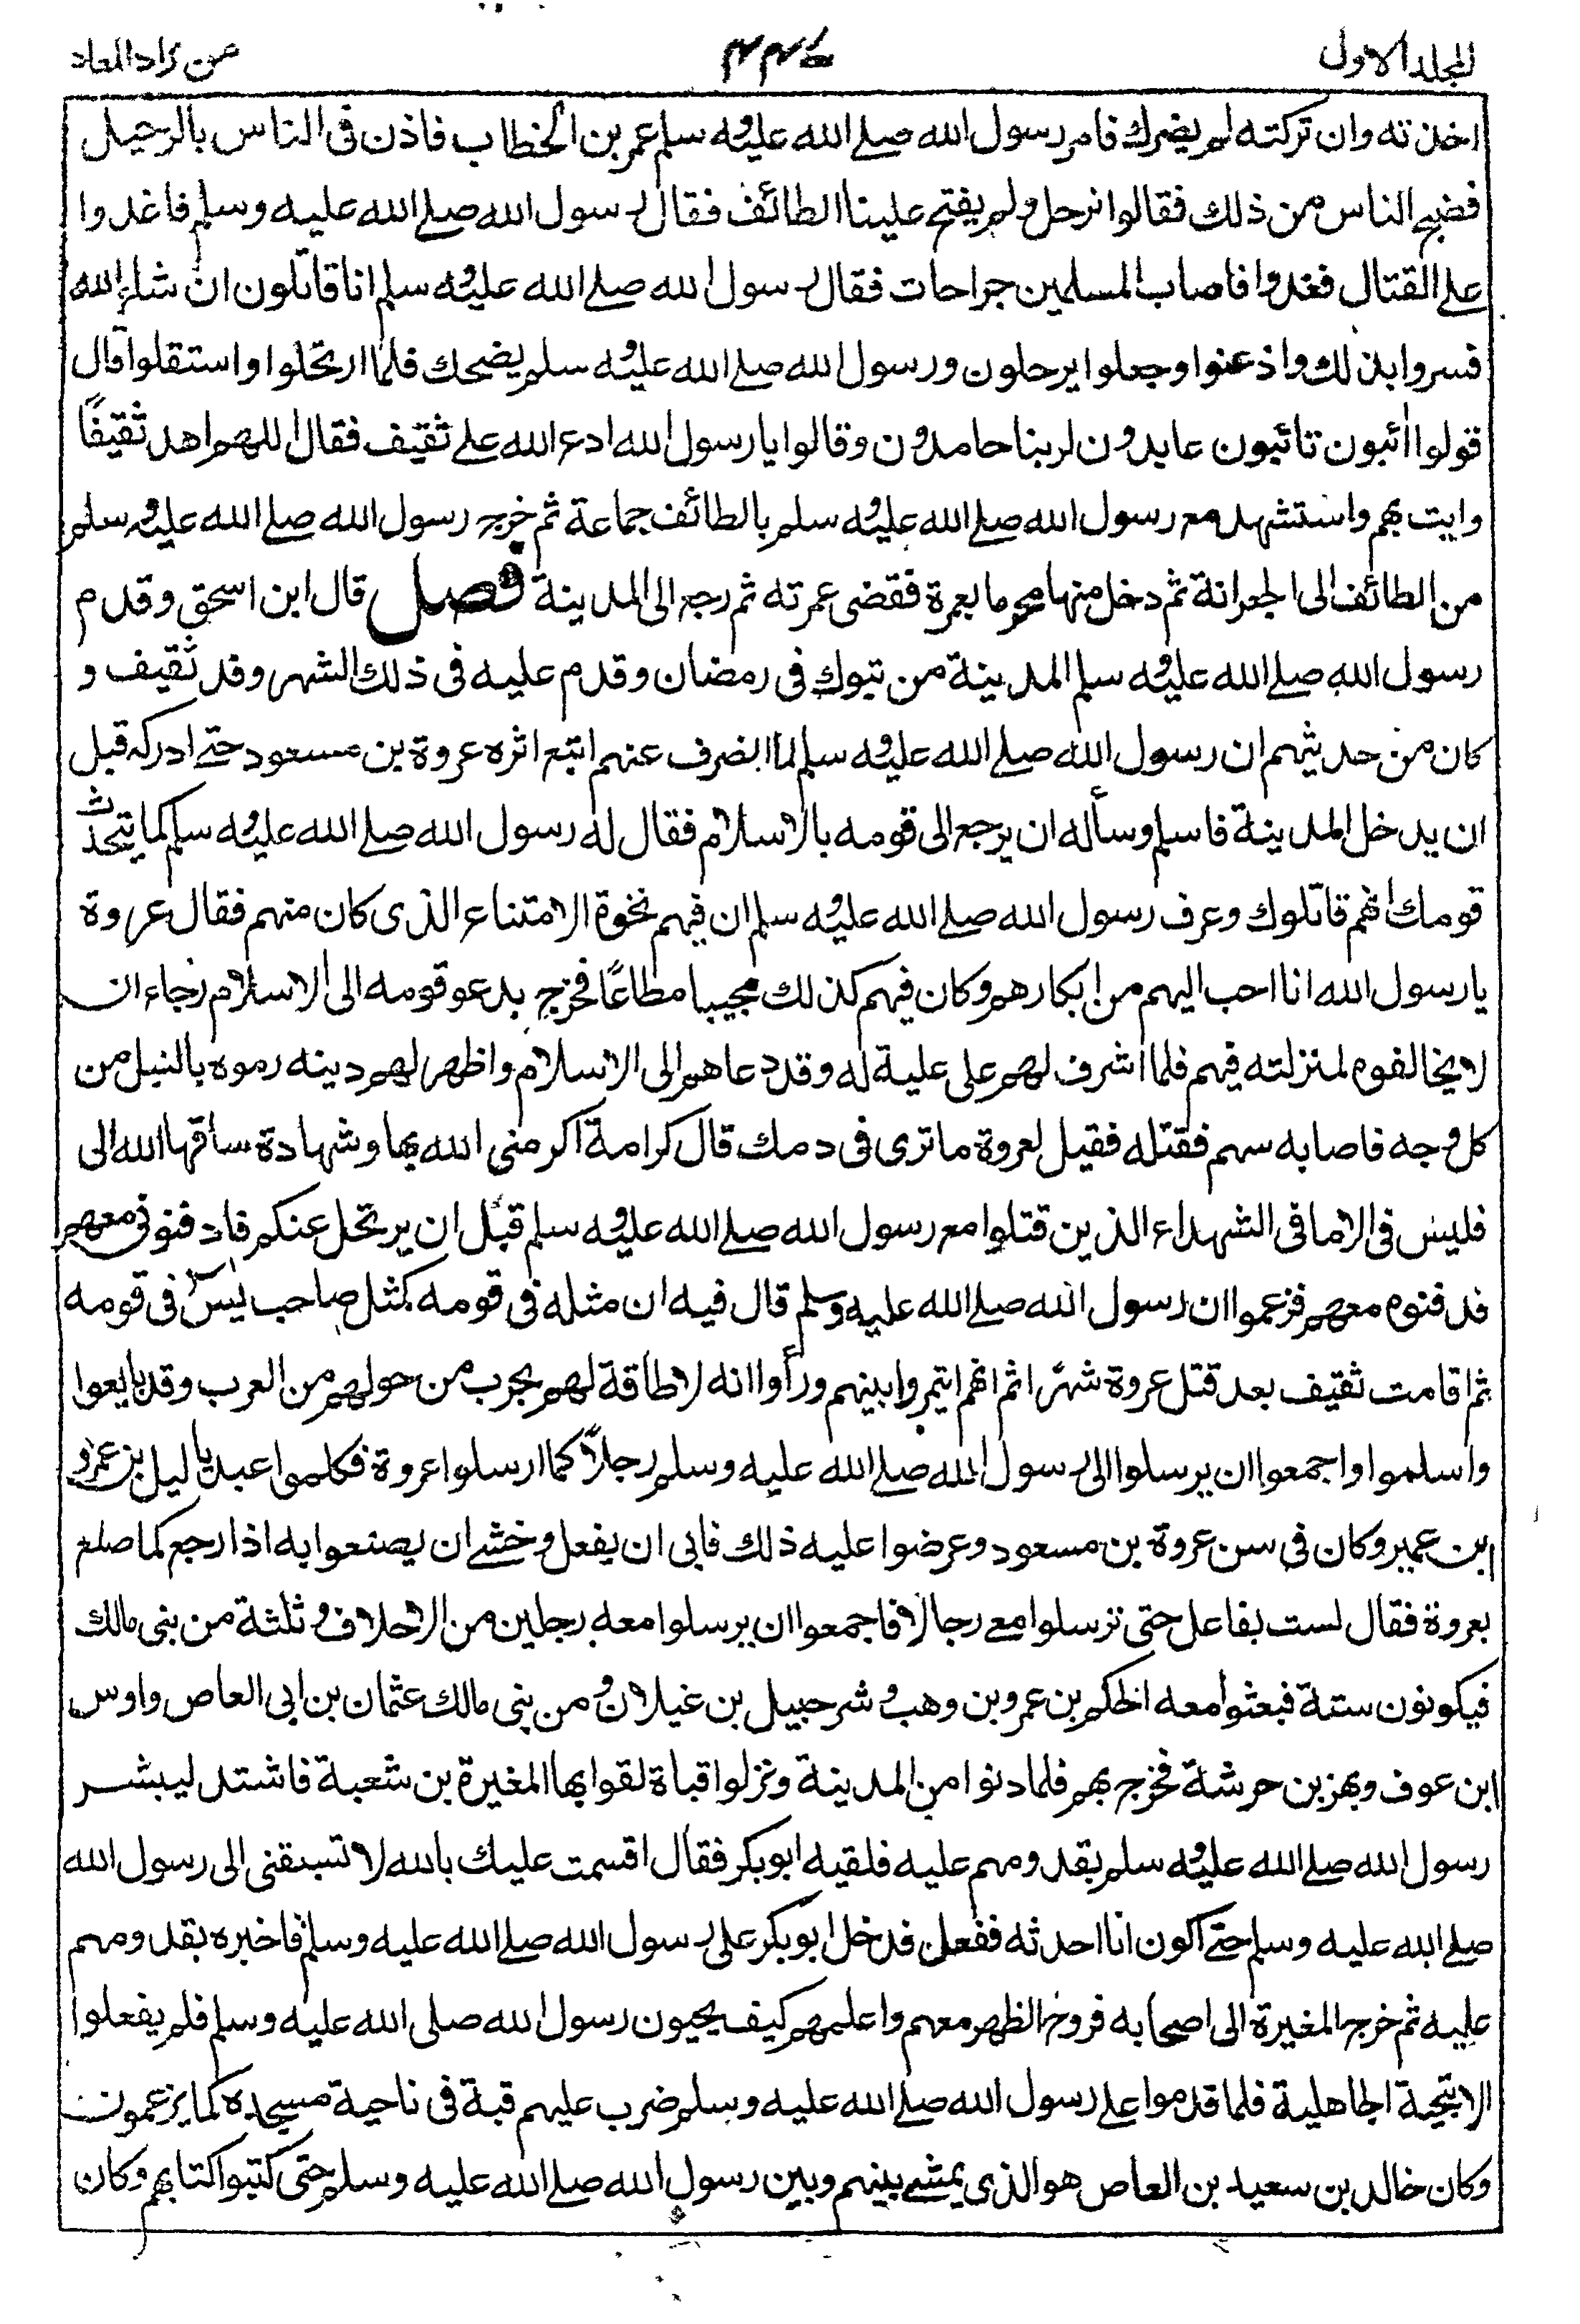 المجلد الاول
من زاد المعاد
اخذته وان تركته لم يضرك فامر رسول الله صلے الله عليه وسلم عمر بن الخطاب فاذن فى الناس بالرحيل
فضج الناس من ذلك فقالوا نرحل ولم يفتح علينا الطائف فقال رسول الله صلے الله عليه وسلم فاغدوا
علے القتال فغدوا فاصاب المسلمين جراحات فقال رسول الله صلے الله عليه وسلم انا قاتلون ان شاء الله
فسروا بذلك واذعنوا وجعلوا يرحلون ورسول الله صلے الله عليه وسلم يضحك فلما ارتحلوا واستقلوا قال
قولوا اٰئبون تائبون عابدون لربنا حامدون وقالوا يا رسول الله ادع الله علے ثقيف فقال اللهم اهد ثقيفًا
وايت بهم واستشهد مع رسول الله صلے الله عليه وسلم بالطائف جماعة ثم خرج رسول الله صلے الله عليه وسلم
من الطائف الى الجعرانة ثم دخل منها محرما بعمرة فقضى عمرته ثم رجع الى المدينة فصل قال ابن اسحق وقدم
رسول الله صلے الله عليه وسلم المدينة من تبوك فى رمضان وقدم عليه فى ذلك الشهر وفد ثقيف و
كان من حديثهم ان رسول الله صلے الله عليه وسلم لما انصرف عنهم اتبع اثره عروة بن مسعود حتے ادركه قبل
ان يدخل المدينة فاسلم وسأله ان يرجع الى قومه بالاسلام فقال له رسول الله صلے الله عليه وسلم كما يتحدث
قومك انهم قاتلوك وعرف رسول الله صلے الله عليه وسلم ان فيهم نخوة الامتناع الذى كان منهم فقال عروة
يا رسول الله انا احب اليهم من ابكارهم وكان فيهم كذلك مجيبا مطاعًا فخرج يدعو قومه الى الاسلام رجاء ان
لا يخالفوه لمنزلته فيهم فلما اشرف لهم على علية له وقد دعاهم الى الاسلام واظهر لهم دينه رموه بالنبل من
كل وجه فاصابه سهم فقتله فقيل لعروة ما ترى فى دمك قال كرامة اكرمنى الله بها وشهادة ساقها الله الى
فليس فى الا ما فى الشهداء الذين قتلوا مع رسول الله صلے الله عليه وسلم قبل ان يرتحل عنكم فادفنونى معهم
فدفنوه معهم فزعموا ان رسول الله صلے الله عليه وسلم قال فيه ان مثله فى قومه كمثل صاحب يٰسٓ فى قومه
ثم اقامت ثقيف بعد قتل عروة شهرًا ثم انهم ايتمروا بينهم ورأوا انه لا طاقة لهم بحرب من حولهم من العرب وقد بايعوا
واسلموا واجمعوا ان يرسلوا الى رسول الله صلے الله عليه وسلم رجلاً كما ارسلوا عروة فكلموا عبد ياليل بن عمرو
ابن عمير وكان فى سن عروة بن مسعود وعرضوا عليه ذلك فابى ان يفعل وخشے ان يصنعوا به اذا رجع كما صنع
بعروة فقال لست بفاعل حتى ترسلوا معى رجالا فاجمعوا ان يرسلوا معه رجلين من الاحلاف وثلثة من بنى مالك
فيكونون ستة فبعثوا معه الحكم بن عمرو بن وهب و شرحبيل بن غيلان ومن بنى مالك عثمان بن ابى العاص واوس
ابن عوف وبهز بن حرشة فخرج بهم فلما دنوا من المدينة ونزلوا قباة لقوا بها المغيرة بن شعبة فاشتد ليبشر
رسول الله صلے الله عليه وسلم بقدومهم عليه فلقيه ابو بكر فقال اقسمت عليك بالله لا تسبقنى الى رسول الله
صلے الله عليه وسلم حتے اكون انا احدثه ففعل فدخل ابو بكر على رسول الله صلے الله عليه وسلم فاخبره بقدومهم
عليه ثم خرج المغيرة الى اصحابه فروح الظهر معهم واعلمهم كيف يحيون رسول الله صلى الله عليه وسلم فلم يفعلوا
الا بتحية الجاهلية فلما قدموا علے رسول الله صلے الله عليه وسلم ضرب عليهم قبة فى ناحية مسجده كما يزعمون
وكان خالد بن سعيد بن العاص هو الذى يمشے بينهم وبين رسول الله صلے الله عليه وسلم حتى كتبوا كتابهم وكان